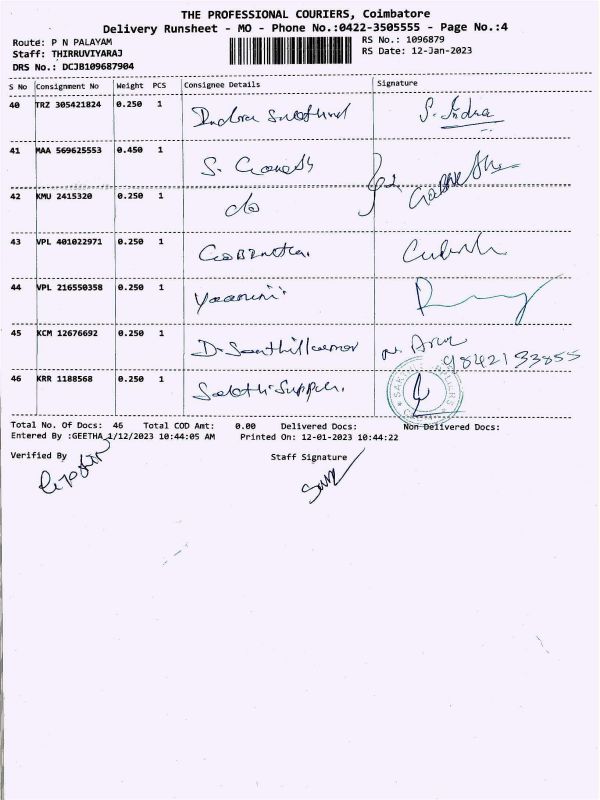 THE PROFESSIONAL COURIERS, Coimbatore
Delivery Runsheet - MO - Phone No.:0422-3505555 - Page No.:4
Route: P N PALAYAM RS No.: 1096879
Staff: THIRRUVIYARAJ RS Date: 12-Jan-2023
DRS No.: DCJB109687904
S No Consignment No Weight PCS Consignee Details Signature
40 TRZ 305421824 0.250 1 Indra S. Indra
41 MAA 569625553 0.450 1 S. Ganesh
42 KMU 2415320 0.250 1 do
43 VPL 401022971 0.250 1
44 VPL 216550358 0.250 1
45 KCM 12676692 0.250 1 D. Senthilkumar 9842133855
46 KRR 1188568 0.250 1 Sakthi
Total No. Of Docs: 46 Total COD Amt: 0.00 Delivered Docs: Non Delivered Docs:
Entered By :GEETHA 1/12/2023 10:44:05 AM Printed On: 12-01-2023 10:44:22
Verified By Staff Signature